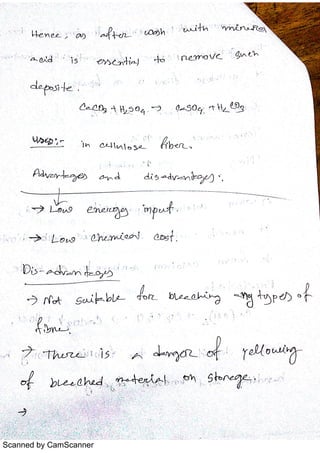 Hence, an after wash with mineral
acid is essential to remove such
deposite.
CaCO3 + H2SO4 → CaSO4 + H2CO3
Uses:- in cellulose fiber.
Advantages and disadvantages:-
→ Low energy input.
→ Low chemical cost.
Dis-advantages
→ Not suitable for bleaching types of
fibre.
→ There is a danger of yellowing
of bleached material on storage.
→
Scanned by CamScanner